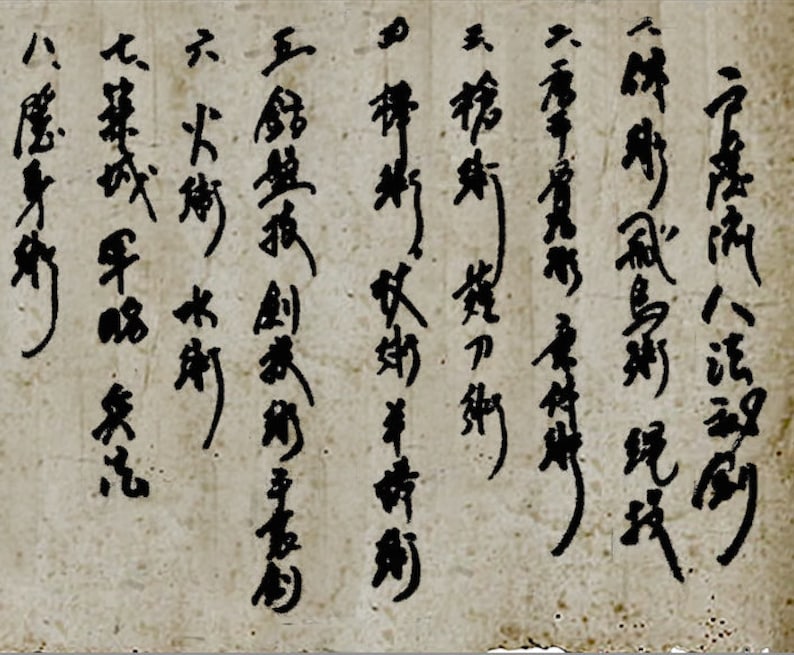 戸隠流八法秘剣
一、体術 飛鳥術 縄投
二、唐手骨指術 柔体術
三、槍術 薙刀術
四 棒術 杖術 半棒術
五、銛盤投 剣投術 手裏剣
六、火術 水術
七、築城 軍略 兵法
八、隠身術